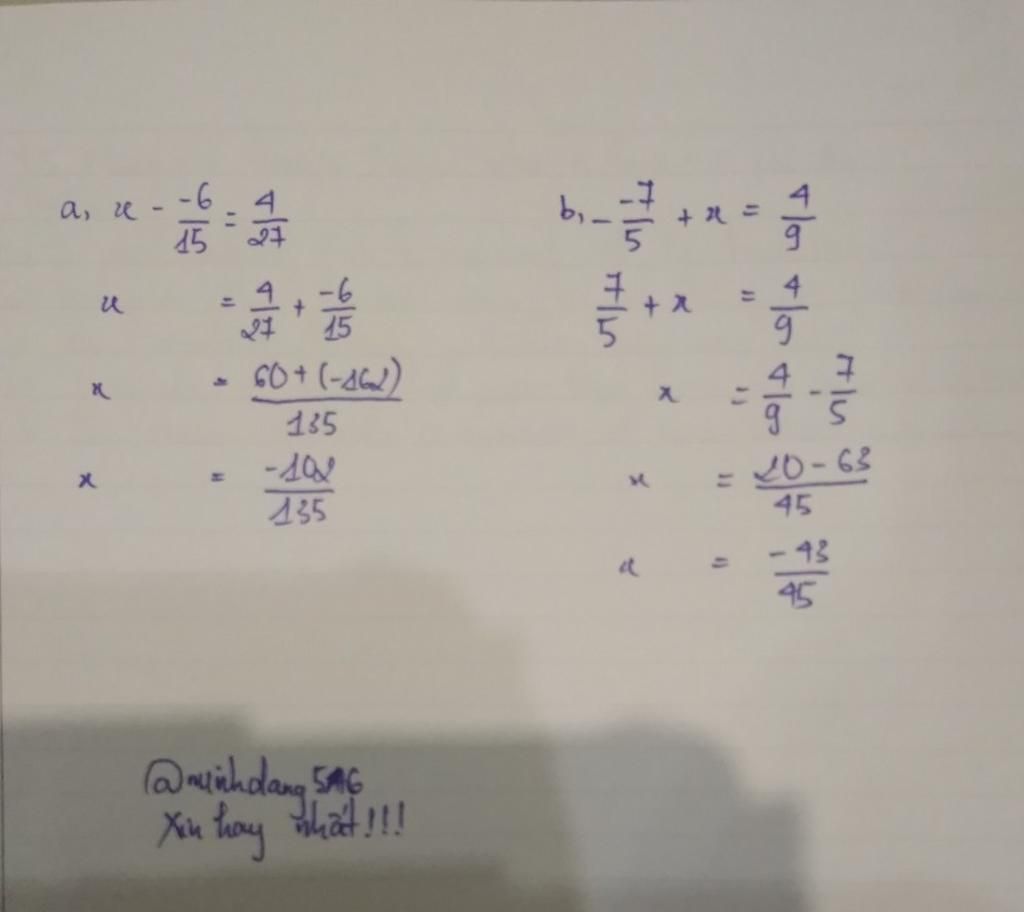 a, x - -6/15 = 4/27
x = 4/27 + -6/15
x = 60+(-162)/135
x = -102/135
b, - -7/5 + x = 4/9
7/5 + x = 4/9
x = 4/9 - 7/5
x = 20-63/45
x = -43/45
@minhdang516
Xin hay nhất!!!